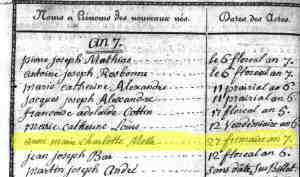 Noms & Prenoms des nouveaux nés. Dates des Actes.
an 7.
pierre joseph Mathias le 6 floreal an 7.
antoine joseph Rasbonne le 6 floreal an 7.
marie catherine Alexandre 11 prairial an 7
jacques joseph Alexandre 11 prairial an 6
francoise adelaide Cottin 17 floreal an 7
marie catherine Louis 12 Vendemiaire an 6
marie Charlotte 27 frimaire an 7.
jean joseph Bar 12 floreal an 6.
martin joseph Andel sans date